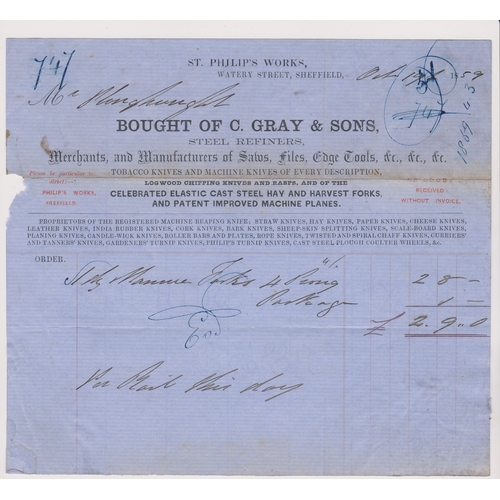 74/
ST. PHILIP'S WORKS,
WATERY STREET, SHEFFIELD, Oct 59
Mr
BOUGHT OF C. GRAY & SONS,
STEEL REFINERS,
Merchants, and Manufacturers of Saws, Files, Edge Tools, &c., &c., &c.
TOBACCO KNIVES AND MACHINE KNIVES OF EVERY DESCRIPTION,
LOGWOOD CHIPPING KNIVES AND RASPS, AND OF THE
CELEBRATED ELASTIC CAST STEEL HAY AND HARVEST FORKS,
AND PATENT IMPROVED MACHINE PLANES.
Please be particular to
direct:—
PHILIP'S WORKS,
SHEFFIELD.
RECEIVED
WITHOUT INVOICE.
PROPRIETORS OF THE REGISTERED MACHINE REAPING KNIFE; STRAW KNIVES, HAY KNIVES, PAPER KNIVES, CHEESE KNIVES,
LEATHER KNIVES, INDIA RUBBER KNIVES, CORK KNIVES, BARK KNIVES, SHEEP-SKIN SPLITTING KNIVES, SCALE-BOARD KNIVES,
PLANING KNIVES, CANDLE-WICK KNIVES, ROLLER BARS AND PLATES, ROPE KNIVES, TWISTED AND SPIRAL CHAFF KNIVES, CURRIERS'
AND TANNERS' KNIVES, GARDENERS' TURNIP KNIVES, PHILIP'S TURNIP KNIVES, CAST STEEL PLOUGH COULTER WHEELS, &c.
ORDER.
Manure Forks 4 Prong 2 8 -
Package 1 -
£ 2. 9. 0
Per Rail this day